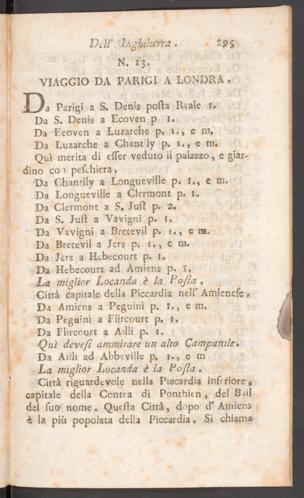 Dell' Inghilterra. 295
N. 13.
VIAGGIO DA PARIGI A LONDRA.
Da Parigi a S. Denis posta Reale 1.
Da S. Denis a Ecoven p. 1.
Da Ecoven a Luzarche p. 1., e m.
Da Luzarche a Chantily p. 1., e m.
Quì merita di esser veduto il palazzo, e giar-
dino con peschiera.
Da Chantily a Longueville p. 1., e m.
Da Longueville a Clermont p. 1.
Da Clermont a S. Just p. 2.
Da S. Just a Vavigni p. 1.
Da Vavigni a Bretevil p. 1., e m.
Da Bretevil a Jers p. 1., e m.
Da Jers a Hebecourt p. 1.
Da Hebecourt ad Amiens p. 1.
La miglior Locanda è la Posta.
Città capitale della Piccardia nell' Amienese.
Da Amiens a Peguinì p. 1., e m.
Da Peguinì a Flircourt p. 1.
Da Flircourt a Ailli p. 1.
Quì devesi ammirare un alto Campanile.
Da Ailli ad Abbeville p. 1., e m
La miglior Locanda è la Posta.
Città riguardevole nella Piccardia inferiore,
capitale della Contea di Ponthieu, del Bail
del suo nome. Questa Città, dopo d' Amiens
è la più popolata della Piccardia. Si chiama